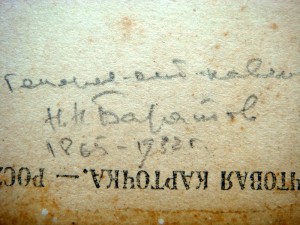 генерал-от-кавал
Н.Н Баратов
1865-1932г.
ЧТОВАЯ КАРТОЧКА. — РОС